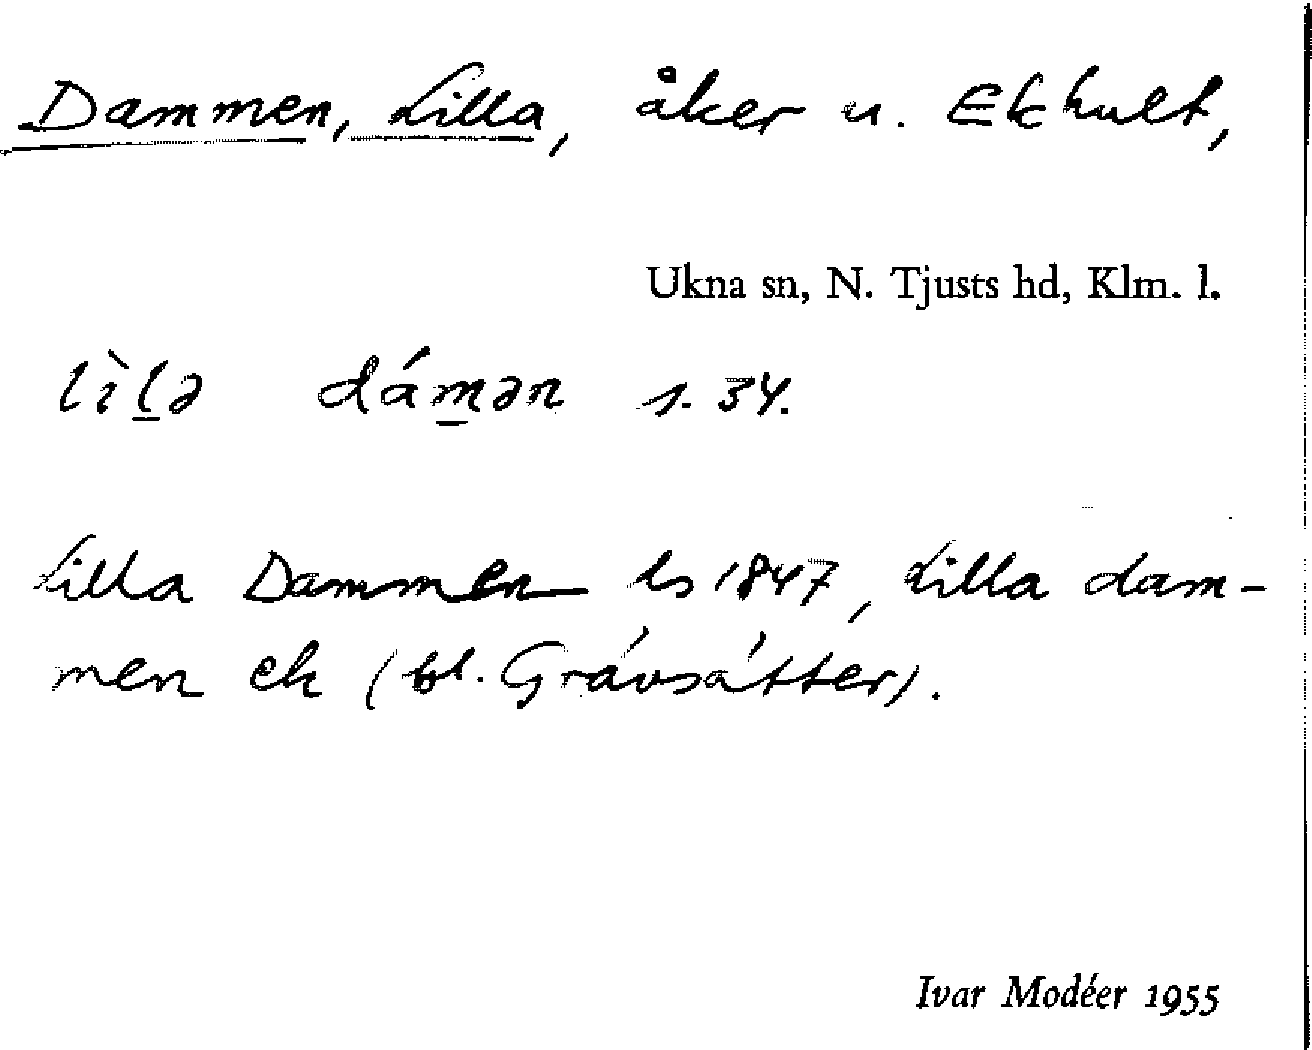 Dammen, Lilla, åker u. Ekhult,
Ukna sn, N. Tjusts hd, Klm. l.
lìl̲ə dám̲ən s. 34.
Lilla Dammen ls 1847, Lilla dam-
men ek (bl. Grávsátter).
Ivar Modéer 1955